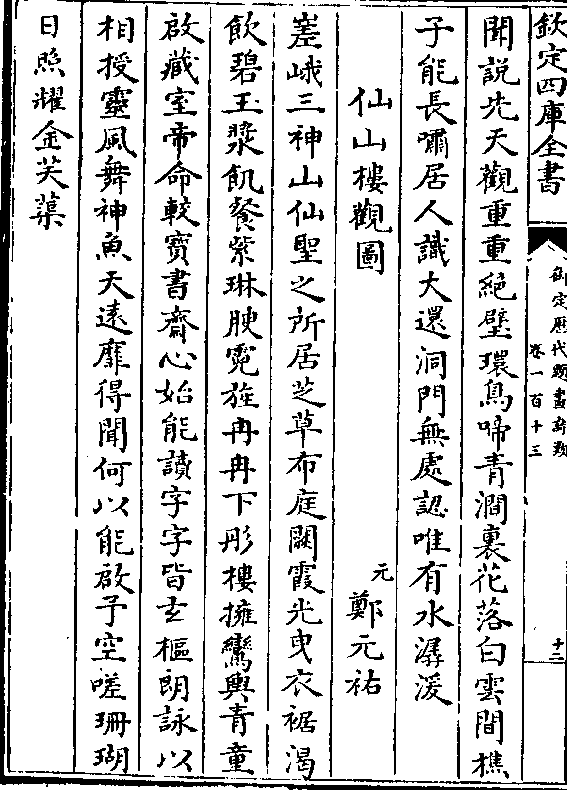 欽定四庫全書
御定歷代題畫詩類
卷一百十三
十二
聞説先天觀重重絶壁環鳥啼青澗裏花落白雲間樵
子能長嘯居人識大還洞門無處認唯有水潺湲
仙山樓觀圖
元 鄭元祐
嵳峨三神山仙聖之所居芝草布庭闕霞光曳衣裾渴
飲碧玉漿飢餐紫琳腴霓旌冉冉下彤樓擁鸞輿青童
啟藏室帝命較寳書齋心始能讀字字皆玄樞朗詠以
相授靈風舞神魚天逺靡得聞何以能啟予空嗟珊瑚
日照耀金芙蕖